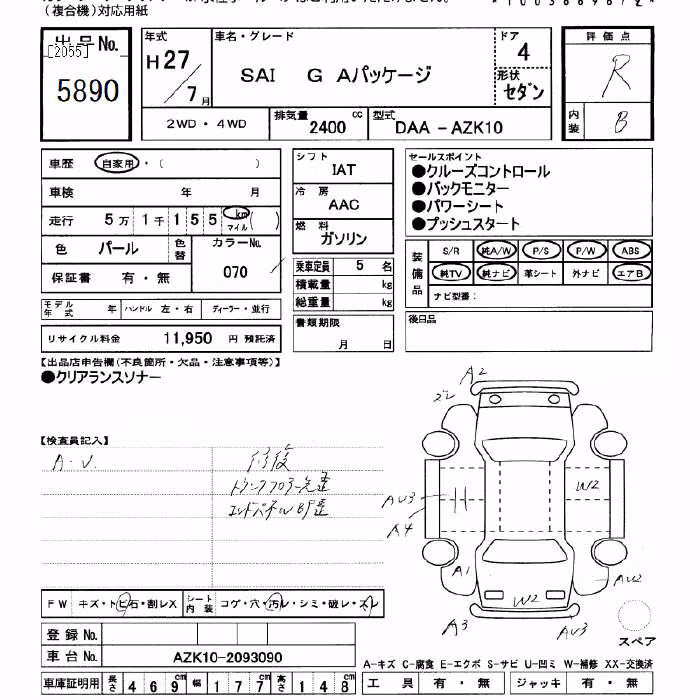 （複合機）対応用紙
出品No.
[2055]
5890
年式
H27/7月
車名・グレード
SAI G Aパッケージ
ドア
4
形状
セダン
評価点
R
内装
B
2WD・4WD
排気量
2400 cc
型式
DAA-AZK10
車歴 自家用・( )
車検 年 月
走行 5万1千155 km マイル ( )
色 パール 色替 カラーNo. 070
保証書 有・無
モデル年式 年 ハンドル 左・右 ディーラー・並行
リサイクル料金 11,950 円 預託済
シフト
IAT
冷房
AAC
燃料
ガソリン
乗車定員 5 名
積載量 kg
総重量 kg
書類期限
月 日
セールスポイント
●クルーズコントロール
●バックモニター
●パワーシート
●プッシュスタート
装備品
S/R 純A/W P/S P/W ABS
純TV 純ナビ 革シート 外ナビ エアB
ナビ型番：
後日品
【出品店申告欄(不良箇所・欠品・注意事項等)】
●クリアランスソナー
【検査員記入】
A・U
修復
トランクフロアー先歪
エンドパネルBP歪
A2
W2
AU3
A4
A1
W2
AU2
A3
AU3
スペア
FW キズ・トビ石・割レX シート内装 コゲ・穴・汚レ・シミ・破レ・スレ
登録No.
車台No. AZK10-2093090
A-キズ C-腐食 E-エクボ S-サビ U-凹ミ W-補修 XX-交換済
車庫証明用 長さ 469cm 幅 177cm 高さ 148cm
工具 有・無 ジャッキ 有・無